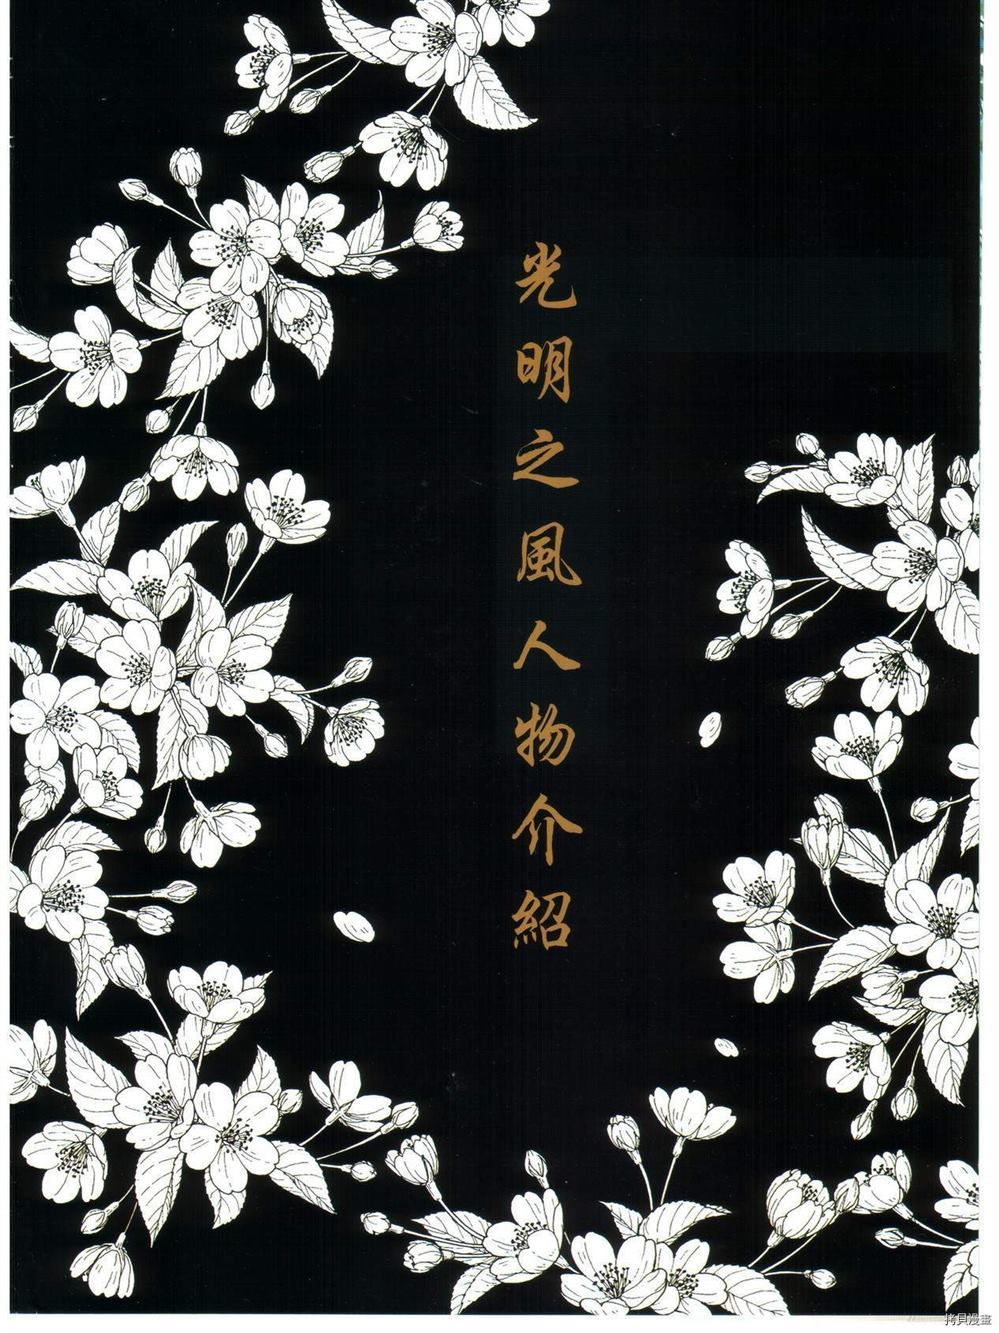 光明之風人物介紹
拷貝漫畫